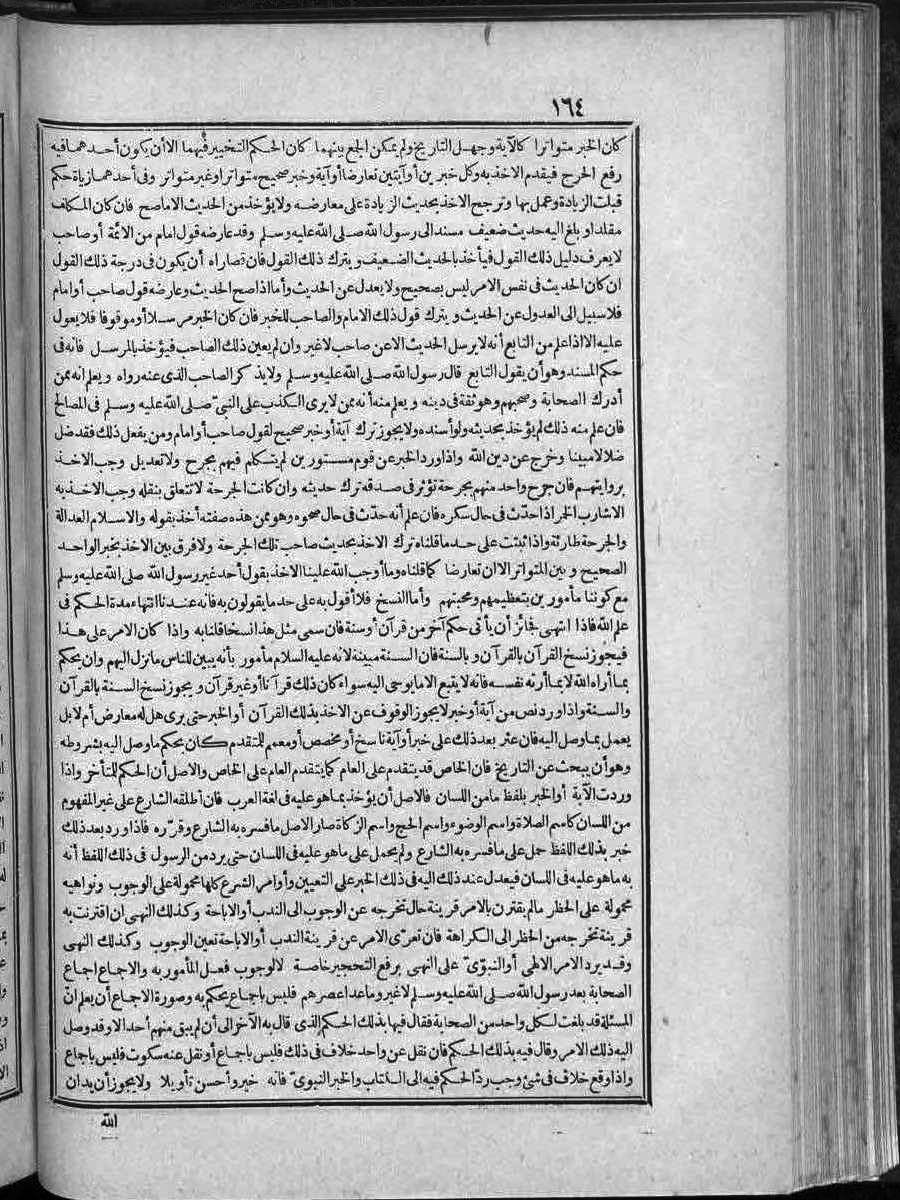 ١٦٤
كان الخبر متواترا كالآية وجهل التاريخ ولم يمكن الجمع بينهما كان الحكم التخيير فيهما الا أن يكون أحدهما فيه
رفع الحرج فيقدم الاخذ به وكل خبرين أو آيتين تعارضا أو آية وخبر صحيح متواتر أو غير متواتر وفى أحدهما زيادة حكم
قبلت الزيادة وعمل بها وترجح الاخذ بحديث الزيادة على معارضه ولا يؤخذ من الحديث الا ما صح فان كان المكلف
مقلدا وبلغ اليه حديث ضعيف مسند الى رسول الله صلى الله عليه وسلم وقد عارضه قول امام من الائمة أو صاحب
لا يعرف دليل ذلك القول فيأخذ بالحديث الضعيف ويترك ذلك القول فان قصاراه أن يكون فى درجة ذلك القول
ان كان الحديث فى نفس الامر ليس بصحيح ولا يعدل عن الحديث وأما اذا صح الحديث وعارضه قول صاحب أو امام
فلا سبيل الى العدول عن الحديث ويترك قول ذلك الامام والصاحب للخبر فان كان الخبر مرسلا أو موقوفا فلا يعول
عليه الا اذا علم من التابع أنه لا يرسل الحديث الا عن صاحب لا غير وان لم يعين ذلك الصاحب فيؤخذ بالمرسل فانه فى
حكم المسند وهو أن يقول التابع قال رسول الله صلى الله عليه وسلم ولا يذكر الصاحب الذى عنه رواه ويعلم انه ممن
أدرك الصحابة وصحبهم وهو ثقة فى دينه ويعلم منه أنه ممن لا يرى الكذب على النبىّ صلى الله عليه وسلم فى المصالح
فان علم منه ذلك لم يؤخذ بحديثه ولو أسنده ولا يجوز ترك آية أو خبر صحيح لقول صاحب أو امام ومن يفعل ذلك فقد ضل
ضلالا مبينا وخرج عن دين الله واذا ورد الخبر عن قوم مستورين لم يتكلم فيهم بجرح ولا تعديل وجب الاخذ
بروايتهم فان جرح واحد منهم بجرحة تؤثر فى صدقه ترك حديثه وان كانت الجرحة لا تتعلق بنقله وجب الاخذ به
الا شارب الخمر اذا حدّث فى حال سكره فان علم أنه حدّث فى حال صحوه وهو ممن هذه صفته أخذ بقوله والاسلام العدالة
والجرحة طارئة واذا ثبتت على حد ما قلناه ترك الاخذ بحديث صاحب تلك الجرحة ولا فرق بين الاخذ بخبر الواحد
الصحيح وبين المتواتر الا ان تعارضا كما قلناه وما أوجب الله علينا الاخذ بقول أحد غير رسول الله صلى الله عليه وسلم
مع كوننا مأمورين بتعظيمهم ومحبتهم وأما النسخ فلا أقول به على حد ما يقولون به فانه عندنا انتهاء مدة الحكم فى
علم الله فاذا انتهى فجائز أن يأتى حكم آخر من قرآن أو سنة فان سمى مثل هذا نسخا قلنا به واذا كان الامر على هذا
فيجوز نسخ القرآن بالقرآن وبالسنة فان السنة مبينة لانه عليه السلام مأمور بأنه يبين للناس ما نزل اليهم وان يحكم
بما أراه الله لا بما أرته نفسه فانه لا يتبع الا ما يوحى اليه سواء كان ذلك قرآنا أو غير قرآن ويجوز نسخ السنة بالقرآن
والسنة واذا ورد نص من آية أو خبر لا يجوز الوقوف عن الاخذ بذلك القرآن أو الخبر حتى يرى هل له معارض أم لا بل
يعمل بما وصل اليه فان عثر بعد ذلك على خبر أو آية ناسخ أو مخصص أو معمم للمتقدم كان يحكم ما وصل اليه بشروطه
وهو أن يبحث عن التاريخ فان الخاص قد يتقدم على العام كما يتقدم العام على الخاص والاصل أن الحكم للمتأخر واذا
وردت الآية أو الخبر بلفظ ما من اللسان فالاصل أن يؤخذ بما هو عليه فى لغة العرب فان أطلقه الشارع على غير المفهوم
من اللسان كاسم الصلاة واسم الوضوء واسم الحج واسم الزكاة صار الاصل ما فسره به الشارع وقرّره فاذا ورد بعد ذلك
خبر بذلك اللفظ حمل على ما فسره به الشارع ولم يحمل على ما هو عليه فى اللسان حتى يرد من الرسول فى ذلك اللفظ أنه
به ما هو عليه فى اللسان فيعدل عند ذلك اليه فى ذلك الخبر على التعيين وأوامر الشرع كلها محمولة على الوجوب ونواهيه
محمولة على الحظر ما لم يقترن بالامر قرينة حال تخرجه عن الوجوب الى الندب أو الاباحة وكذلك النهى ان اقترنت به
قرينة تخرجه من الحظر الى الكراهة فان تعرّى الامر عن قرينة الندب أو الاباحة تعين الوجوب وكذلك النهى
وقد يرد الامر الالهى أو النبوىّ على النهى برفع التحجير خاصة لا لوجوب فعل المأمور به والاجماع اجماع
الصحابة بعد رسول الله صلى الله عليه وسلم لا غير وما عدا عصرهم فليس باجماع يحكم به وصورة الاجماع أن يعلم انّ
المسئلة قد بلغت لكل واحد من الصحابة فقال فيها بذلك الحكم الذى قال به الآخر الى أن لم يبق منهم أحد الا وقد وصل
اليه ذلك الامر وقال فيه بذلك الحكم فان نقل عن واحد خلاف فى ذلك فليس باجماع أو نقل عنه سكوت فليس باجماع
واذا وقع خلاف فى شئ وجب ردّ الحكم فيه الى الكتاب والخبر النبوىّ فانه خير وأحسن تأويلا ولا يجوز أن يدان
الله